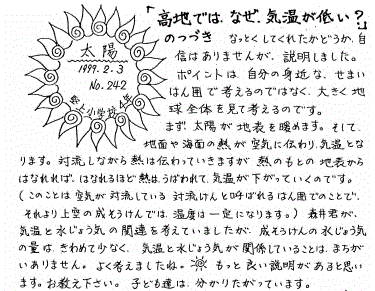 「高地では、なぜ、気温が低い？」
のつづき　なっとくしてくれたかどうか、自
信はありませんが、説明しました。
ポイントは、自分の身近な、せまい
はん囲で考えるのではなく、大きく地
球全体を見て考えるのです。
まず、太陽が地表を暖めます。そして、
地面や海面の熱が空気に伝わり、気温とな
ります。対流しながら熱は伝わっていきますが、熱のもとの地表から
はなれれば、はなれるほど熱はうばわれて、気温が下がっていくのです。
（このことは空気が対流している対流けんと呼ばれるはん囲でのことで、
それより上空の成そうけんでは、温度は一定になります。）　君が、
気温と水じょう気の関連も考えていましたが、成そうけんの水じょう気
の量は、きわめて少なく、気温と水じょう気が関係していることは、まちが
いありません。よく考えましたね。もっと良い説明があると思い
ます。お教え下さい。子ども達は、分かりたがっています。
太陽
1999.2.3
No.242
小学校 4年